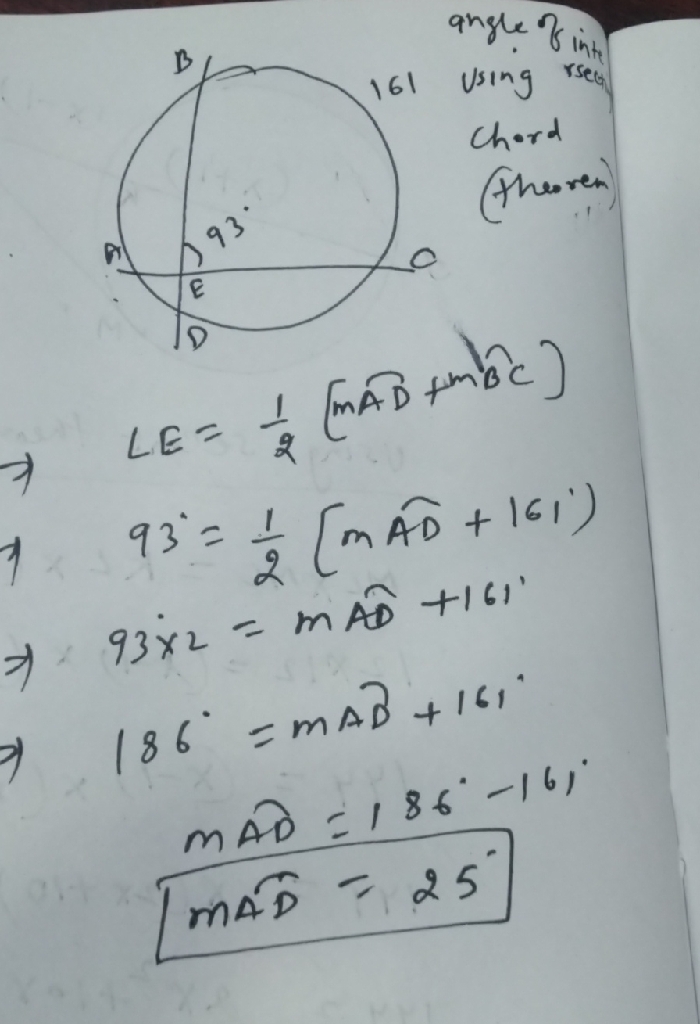 angle of inte
rsecti
using
chord
(theorem)
B
161
93°
A
E
C
D
⇒ LE = 1/2 [mAD + mBC]
⇒ 93° = 1/2 [mAD + 161°)
⇒ 93°x2 = mAD + 161°
⇒ 186° = mAD + 161°
mAD = 186° - 161°
mAD = 25°